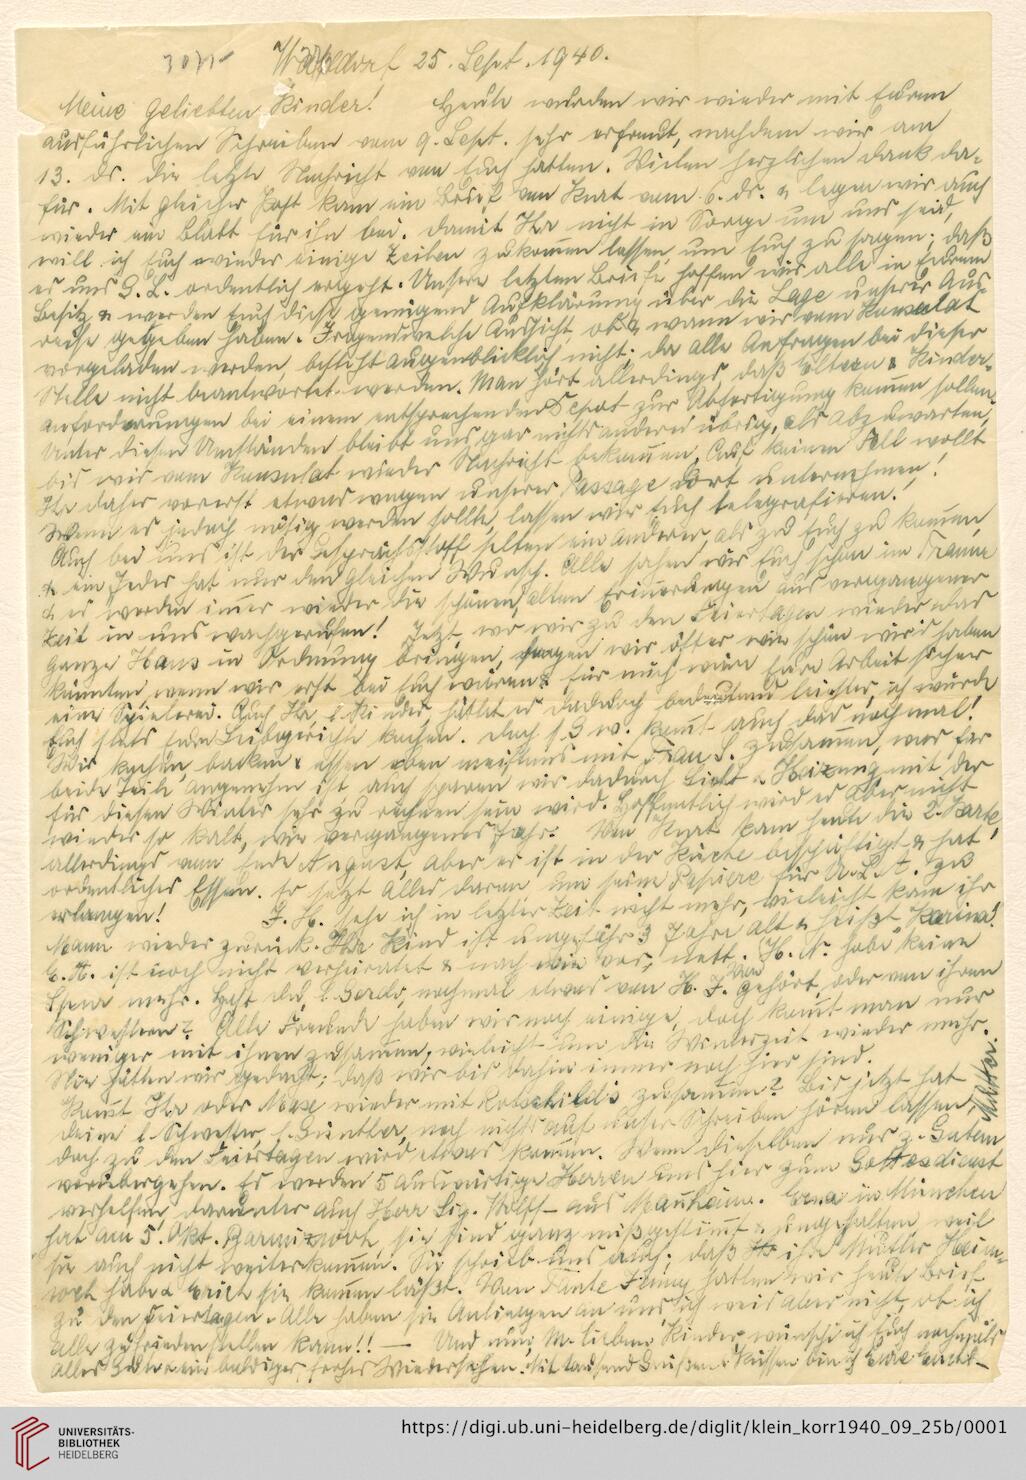 Walldorf 25. Sept. 1940.
Meine geliebten Kinder! Heute wurden wir wieder mit Eurem
ausführlichen Schreiben vom 9. Sept. sehr erfreut, nachdem wir am
13. ds. die letzte Nachricht von Euch hatten. Vielen herzlichen Dank da-
für. Mit gleicher Post kam ein Brief von Kurt vom 6. ds. & legen wir auch
wieder ein Blatt für ihn bei. Damit Ihr nicht in Sorge um uns seid,
will ich Euch wieder einige Zeilen zukommen lassen, um Euch zu sagen, daß
es uns G. L. ordentlich ergeht. Unsere letzten Briefe hoffen wir alle in Eurem
Besitz & werden Euch diese genügend Aufklärung über die Lage unserer Aus-
reise gegeben haben. Irgendwelche Aussicht, ob & wann wir vom Konsulat
vorgeladen werden, besteht augenblicklich nicht; da alle Anfragen bei dieser
Stelle nicht beantwortet werden. Man hört allerdings, daß Eltern & Kinder-
anforderungen bei einem entsprechenden Depot zur Abfertigung kommen sollen.
Unter diesen Umständen bleibt uns gar nichts anderes übrig, als abzuwarten,
bis wir vom Konsulat wieder Nachricht bekommen. Auf keinen Fall wollt
Ihr daher vorerst etwas wegen unserer Passage dort unternehmen!
Wenn es jedoch nötig werden sollte, lassen wir Euch telegrafieren.!
Auch bei uns ist der Gesprächsstoff selten ein anderer, als zu Euch zu kommen
& ein Jeder hat nur den gleichen Wunsch. Alle sahen wir Euch schon im Traume
& es werden immer wieder die schönen, alten Erinnerungen aus vergangener
Zeit in uns wachgerufen! Jetzt, wo wir zu den Feiertagen wieder das
ganze Haus in Ordnung bringen, sagen wir öfter wie schön wir's haben
könnten, wenn wir erst bei Euch wären & für mich wäre Eure Arbeit sicher
eine Spielerei. Auch Ihr, l. Kinder, hättet es dadurch bedeutend leichter, ich würde
Euch stets Eure Leibgerichte kochen. Doch s. G. w. kommt auch das nochmal!
Wir kochen, backen & essen eben meistens mit Frau S. zusammen, was für
beide Teile angenehm ist, auch sparen wir dadurch Licht & Heizung mit der
für diesen Winter sehr zu rechnen sein wird. Hoffentlich wird es aber nicht
wieder so kalt, wie vergangenes Jahr. Von Kurt kam heute die 2. Karte,
allerdings vom Ende August, aber er ist in der Küche beschäftigt & hat
ordentliches Essen. Er setzt alles daran um seine Papiere für U.S.A. zu
erlangen! J. H. sehe ich in letzter Zeit nicht mehr, vielleicht kam ihr
Mann wieder zurück. Ihr Kind ist ungefähr 3 Jahre alt & heißt "Karina".
E. A. ist noch nicht verheiratet & nach wie vor, nett. H. N. habe keine
mehr. Hast du, l. Gerdi, nochmal etwas von H. J. gehört, oder von ihren
Schwestern? Alle Freunde haben wir noch einige, doch kommt man nur
weniger mit ihnen zusammen, vielleicht um die Winterzeit wieder mehr.
Nie hätten wir gedacht, daß wir bis dahin immer noch hier sind.
Kommt Ihr oder Max wieder mit Rotschild's zusammen? Bis jetzt hat
deine l. Schwester, l. Günther, noch nichts auf unser Schreiben hören lassen,
doch zu den Feiertagen wird etwas kommen. Wenn dieselben nur z. Guten
vorübergehen. Es werden 5 auswärtige Herren uns hier zum Gottesdienst
verhelfen, darunter auch Herr Sig. Wolff aus Mannheim. Erna in München
hat am 5. Okt. Barmizwoh, sie sind ganz mißgestimmt & ungehalten, weil
sie auch nicht weiterkommen. Sie schrieb uns auch, daß ihre Mutter Heim-
weh habe & Erich sie kommen läßt. Von Tante Fanny hatten wir heute Brief
zu den Feiertagen. Alle haben sie Anliegen an uns, ich weis aber nicht, ob ich
alle zufriedenstellen kann!! — Und nun, m. lieben Kinder, wünsche ich Euch nochmals
alles Gute & ein baldiges, frohes Wiedersehen. Mit tausend Grüßen & Küssen bin ich Eure Euch l-
Mutter.
UNIVERSITÄTS-
BIBLIOTHEK
HEIDELBERG
https://digi.ub.uni-heidelberg.de/diglit/klein_korr1940_09_25b/0001